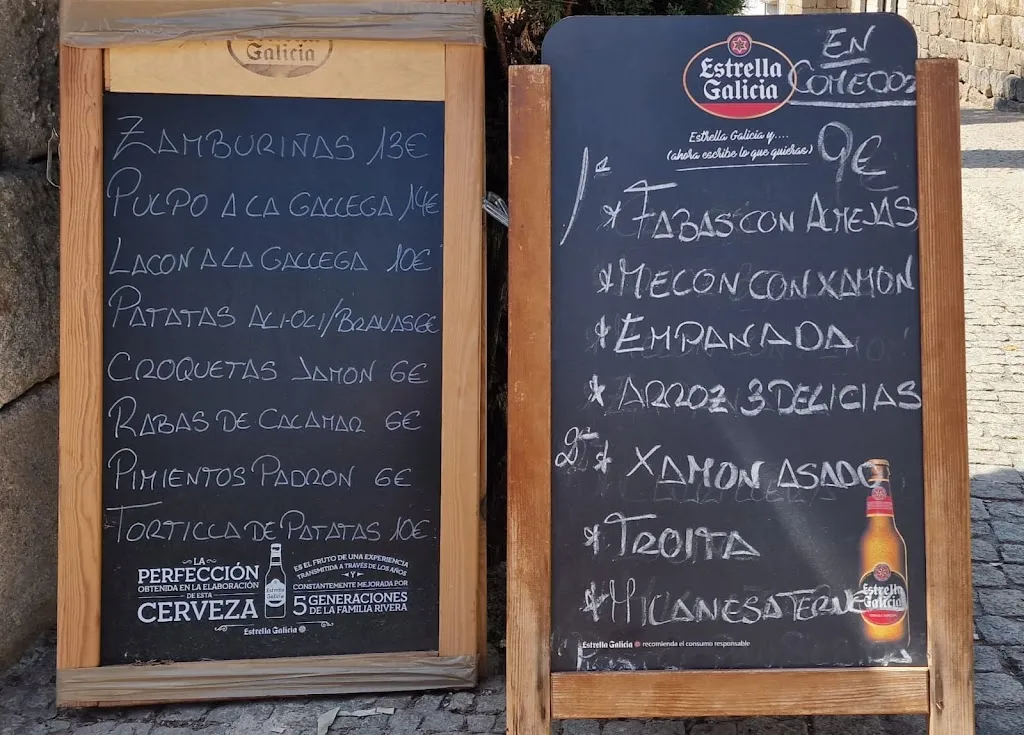 Galicia
ZAMBURIÑAS 13€
PULPO A LA GALLEGA 14€
LACON A LA GALLEGA 10€
PATATAS ALI-OLI/BRAVAS 6€
CROQUETAS JAMON 6€
RABAS DE CALAMAR 6€
PIMIENTOS PADRON 6€
TORTILLA DE PATATAS 10€
LA
PERFECCIÓN
OBTENIDA EN LA ELABORACIÓN
DE ESTA
CERVEZA
Estrella Galicia
ES EL FRUTO DE UNA EXPERIENCIA
TRANSMITIDA A TRAVÉS DE LOS AÑOS
Y
CONSTANTEMENTE MEJORADA POR
5 GENERACIONES
DE LA FAMILIA RIVERA
Estrella Galicia
Estrella
Galicia
EN
COMEDOR
Estrella Galicia y....
(ahora escribe lo que quieras)
9€
1º
* FABAS CON ALMEJAS
* MELON CON XAMON
* EMPANADA
* ARROZ 3 DELICIAS
2º * XAMON ASADO
* TROITA
* MILANESA TERNE
Estrella
Galicia
Estrella Galicia recomienda el consumo responsable